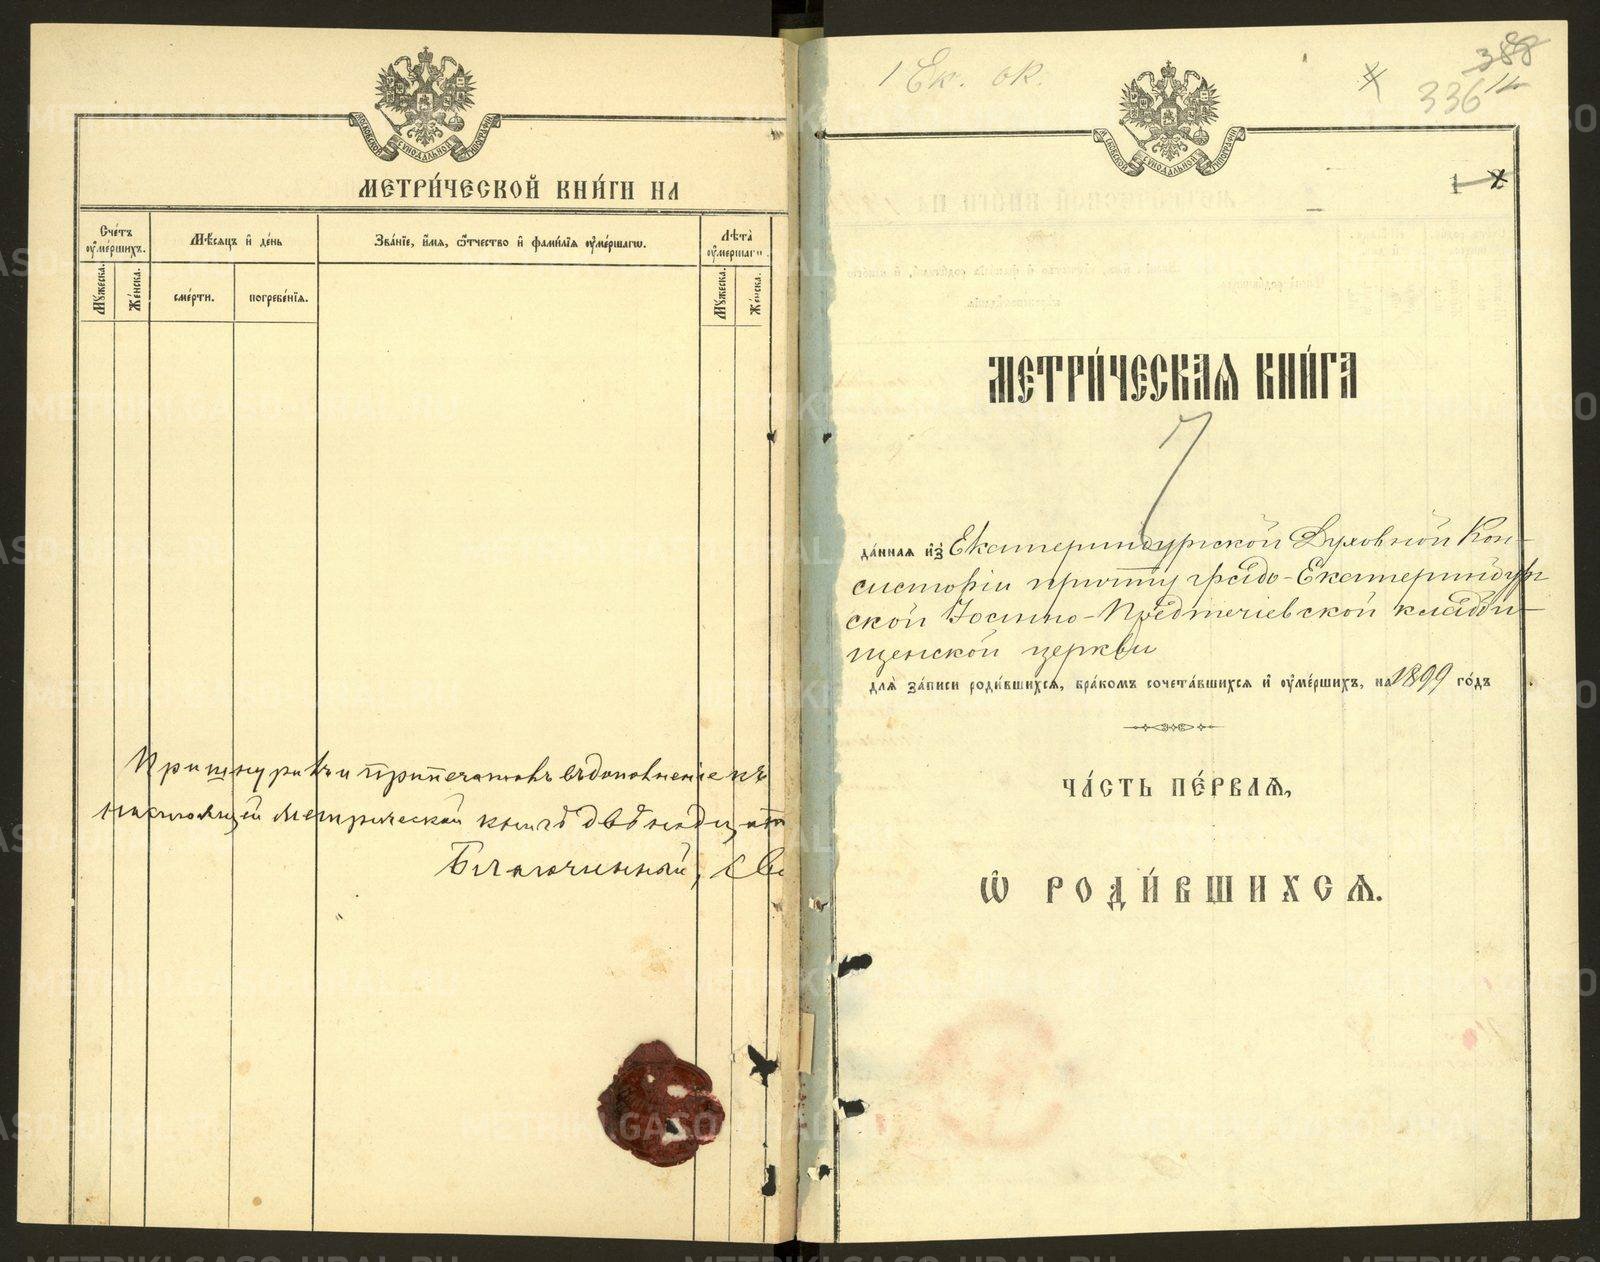 МОСКОВСКОЙ СУНОДАЛЬНОЙ ТИПОГРАФІИ
МЕТРИ́ЧЕСКОЙ КНИ́ГИ НА
Сче́тъ
оу҆ме́ршихъ.
Мѣ́сяцъ и҆ де́нь
Зва́нїе, и҆́мя, ѻ҆́тчество и҆ фами́лїя оу҆ме́ршагѡ.
Лѣ́та
оу҆ме́ршаг
Мꙋ́жеска.
Же́нска.
сме́рти.
погребе́нїя.
Мꙋ́жеска.
Же́нска.
Пришнуривъ и припечаталъ въ дополненіе къ
настоящей метрической книгѣ двѣнадцать
Благочинный,
1 Ек. ок.
388
336
МОСКОВСКОЙ СУНОДАЛЬНОЙ ТИПОГРАФІИ
МЕТРИ́ЧЕСКАѦ КНИ́ГА
да́нная и҆зъ Екатеринбургской Духовной Кон-
систоріи причту градо-Екатеринбург
ской Іоанно-Предтечіевской кладби-
щенской церкви
для̀ за́писи роди́вшихсѧ, бра́комъ сочета́вшихсѧ и҆ оу҆ме́ршихъ, на 1899 го́дъ
ЧА́СТЬ ПЕ́РВАѦ,
Ѡ҆ РОДИ́ВШИХСѦ.
METRIKI.GASO-URAL.RU